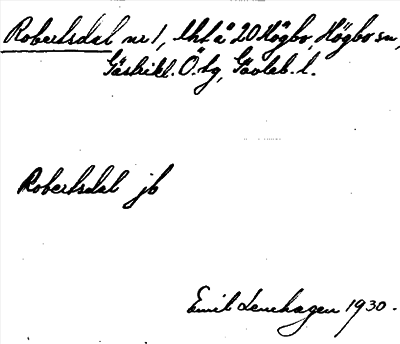 Robertsdal nr 1, lht å 20 Högbo, Högbo sn,
Gästrikl. Ö. tg, Gävleb. l.
Robertsdal jb
Emil Lenehagen 1930.